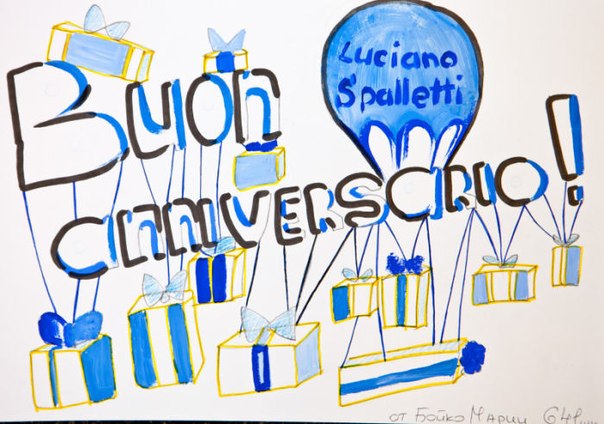 Luciano
Spalletti
Buon
anniversario!
от Бойко Марии